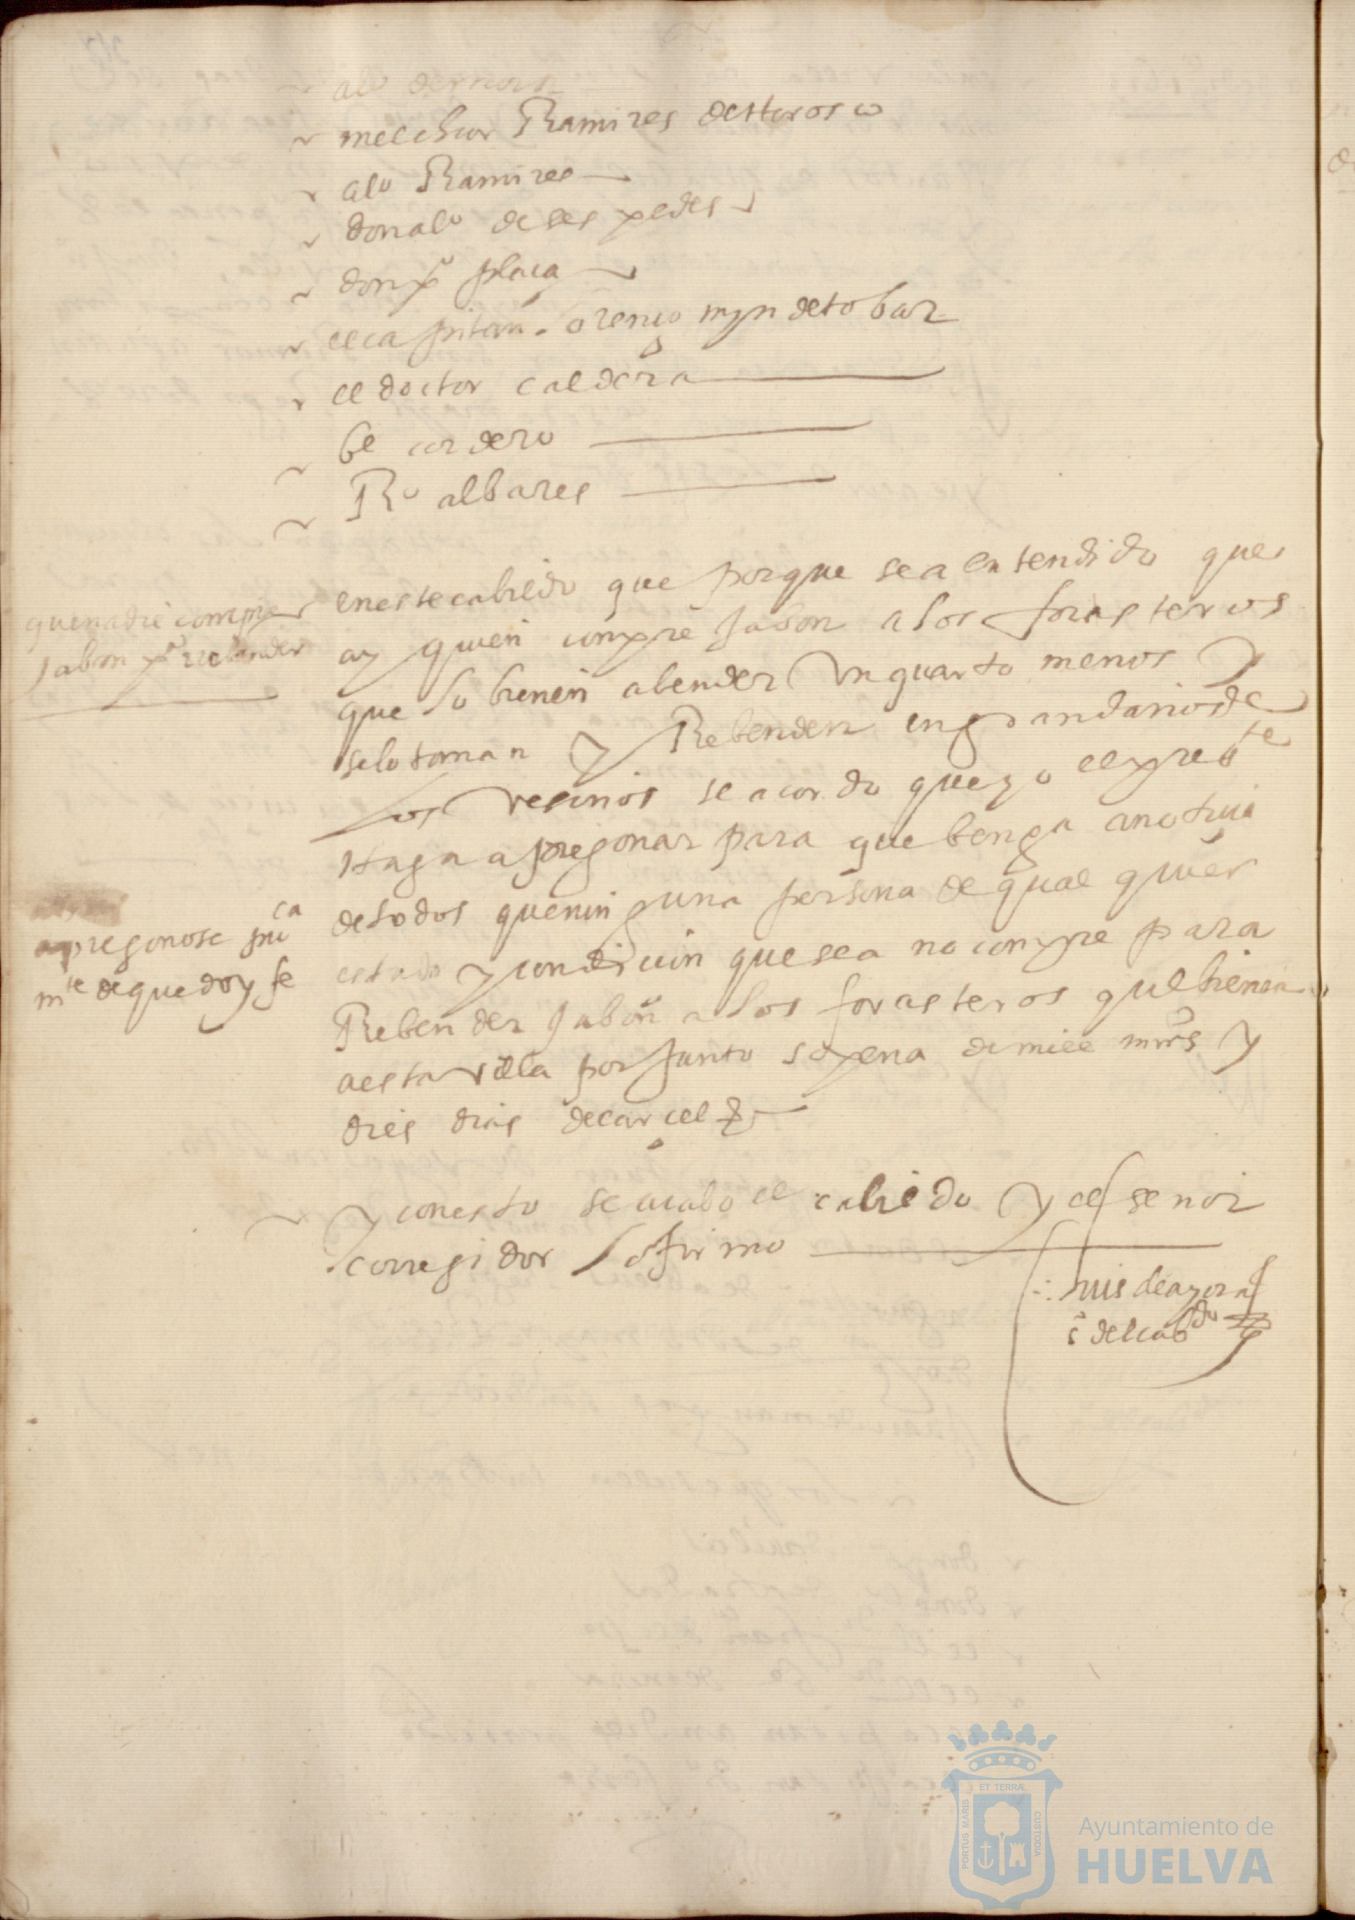 alo de
melchior Ramires de Horosco
alo Ramires
don alo de ses pedes
don po plaça
el capitan lorenço myn de tobar
el doctor caldera
bel cordero
Ro albares
que nadie compre
Jabon pa rrebender
en este cabildo que porque se a entendido que
ay quien conpre Jabon a los forasteros
que lo bienen a bender Un quarto menos y
se lo toman y Rebenden en gran daño de
los vesinos se acordo que yo el preste
Haga apregonar para que benga a notiçia
de todos que ninguna persona de qualquier
estado y condiçion que sea no conpre para
Rebender Jabon a los forasteros que bienen
a esta villa por Junto so pena de mill mrs y
dies dias de carcel
apregonose puca
mte de que doy fe
y con esto se acabo el cabildo y el señor
corregidor lo firmo
luis de ayora
so del cabdo
PORTUS MARIS ET TERRÆ CUSTODIA
Ayuntamiento de
HUELVA